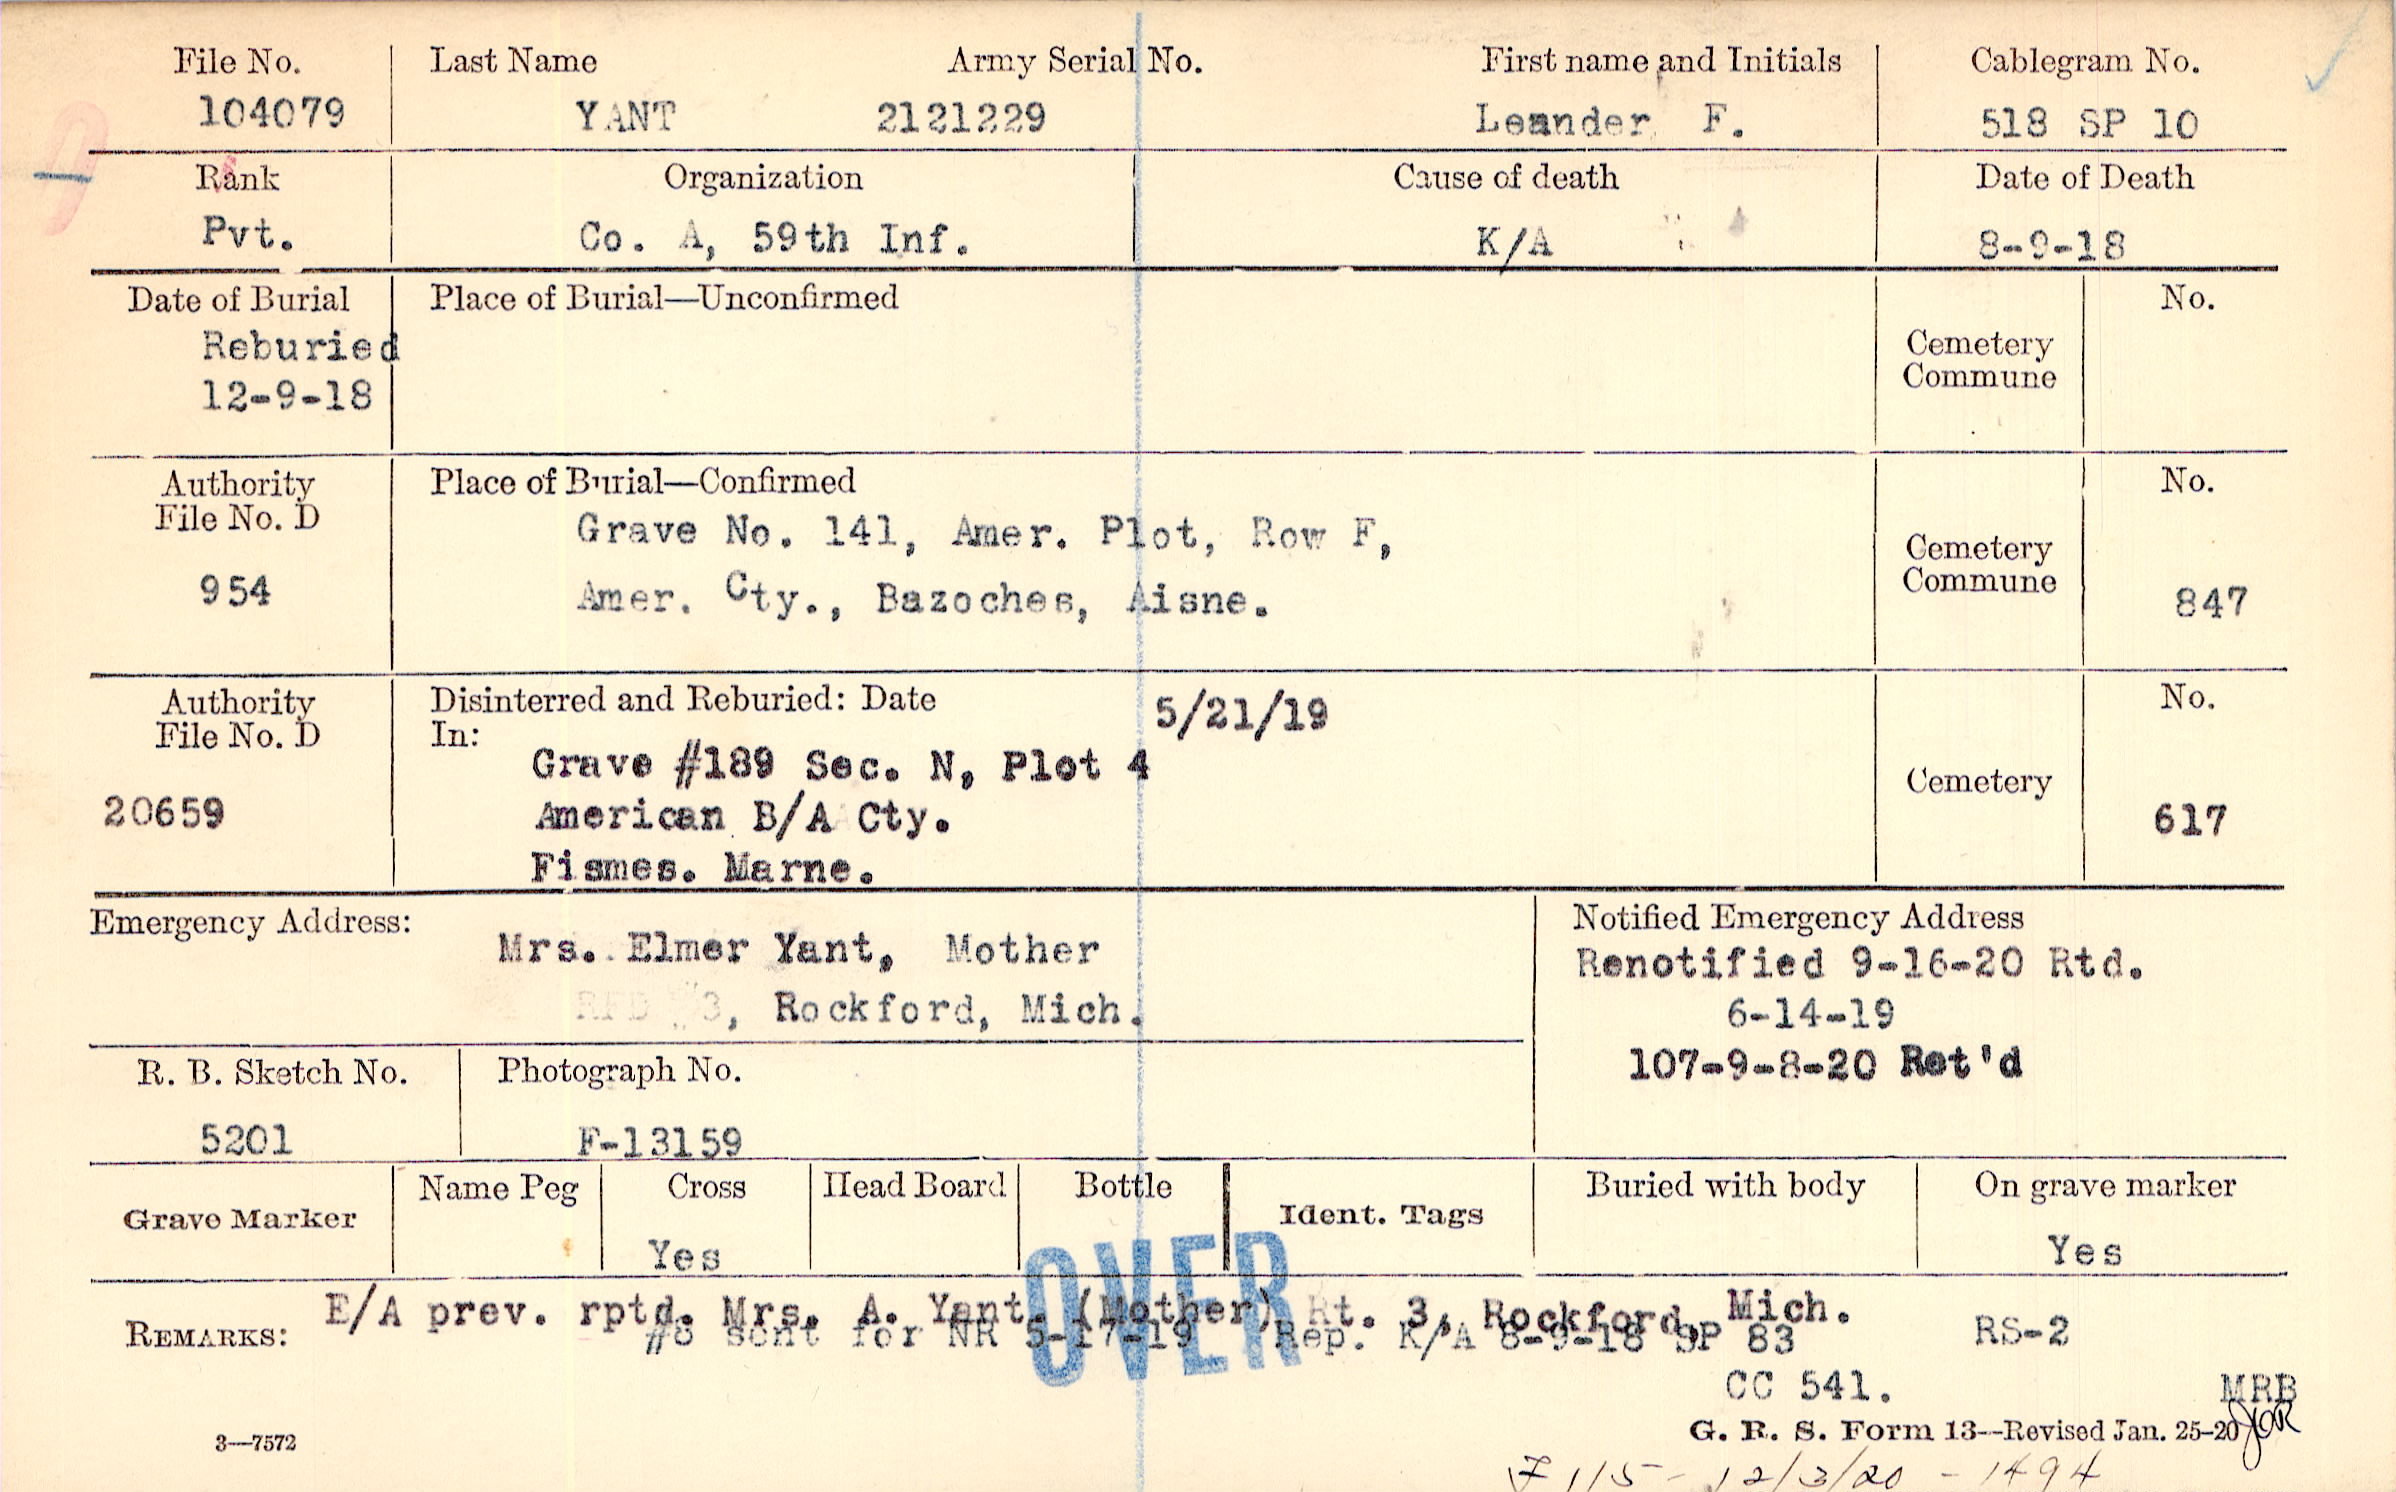 File No. Last Name Army Serial No. First name and Initials Cablegram No.
104079 YANT 2121229 Leander F. 518 SP 10
Rank Organization Cause of death Date of Death
Pvt. Co. A, 59th Inf. K/A 8-9-18
Date of Burial Place of Burial—Unconfirmed No.
Reburied
12-9-18
Cemetery
Commune
Authority
File No. D
954
Place of Burial—Confirmed
Grave No. 141, Amer. Plot, Row F,
Amer. Cty., Bazoches, Aisne.
Cemetery
Commune
No.
847
Authority
File No. D
20659
Disinterred and Reburied: Date 5/21/19
In:
Grave #189 Sec. N, Plot 4
American B/A Cty.
Fismes. Marne.
Cemetery
No.
617
Emergency Address:
Mrs. Elmer Yant, Mother
RFD #3, Rockford, Mich.
Notified Emergency Address
Renotified 9-16-20 Rtd.
6-14-19
107-9-8-20 Ret'd
R. B. Sketch No. Photograph No.
5201 F-13159
Grave Marker Name Peg Cross Head Board Bottle Ident. Tags Buried with body On grave marker
Yes Yes
OVER
REMARKS: E/A prev. rptd. Mrs. A. Yant. (Mother) Rt. 3, Rockford, Mich.
#8 sent for NR 5-17-19 Rep. K/A 8-9-18 SP 83 RS-2
CC 541. MRB
3—7572 G. R. S. Form 13—Revised Jan. 25-20
115 - 12/3/20 - 1494